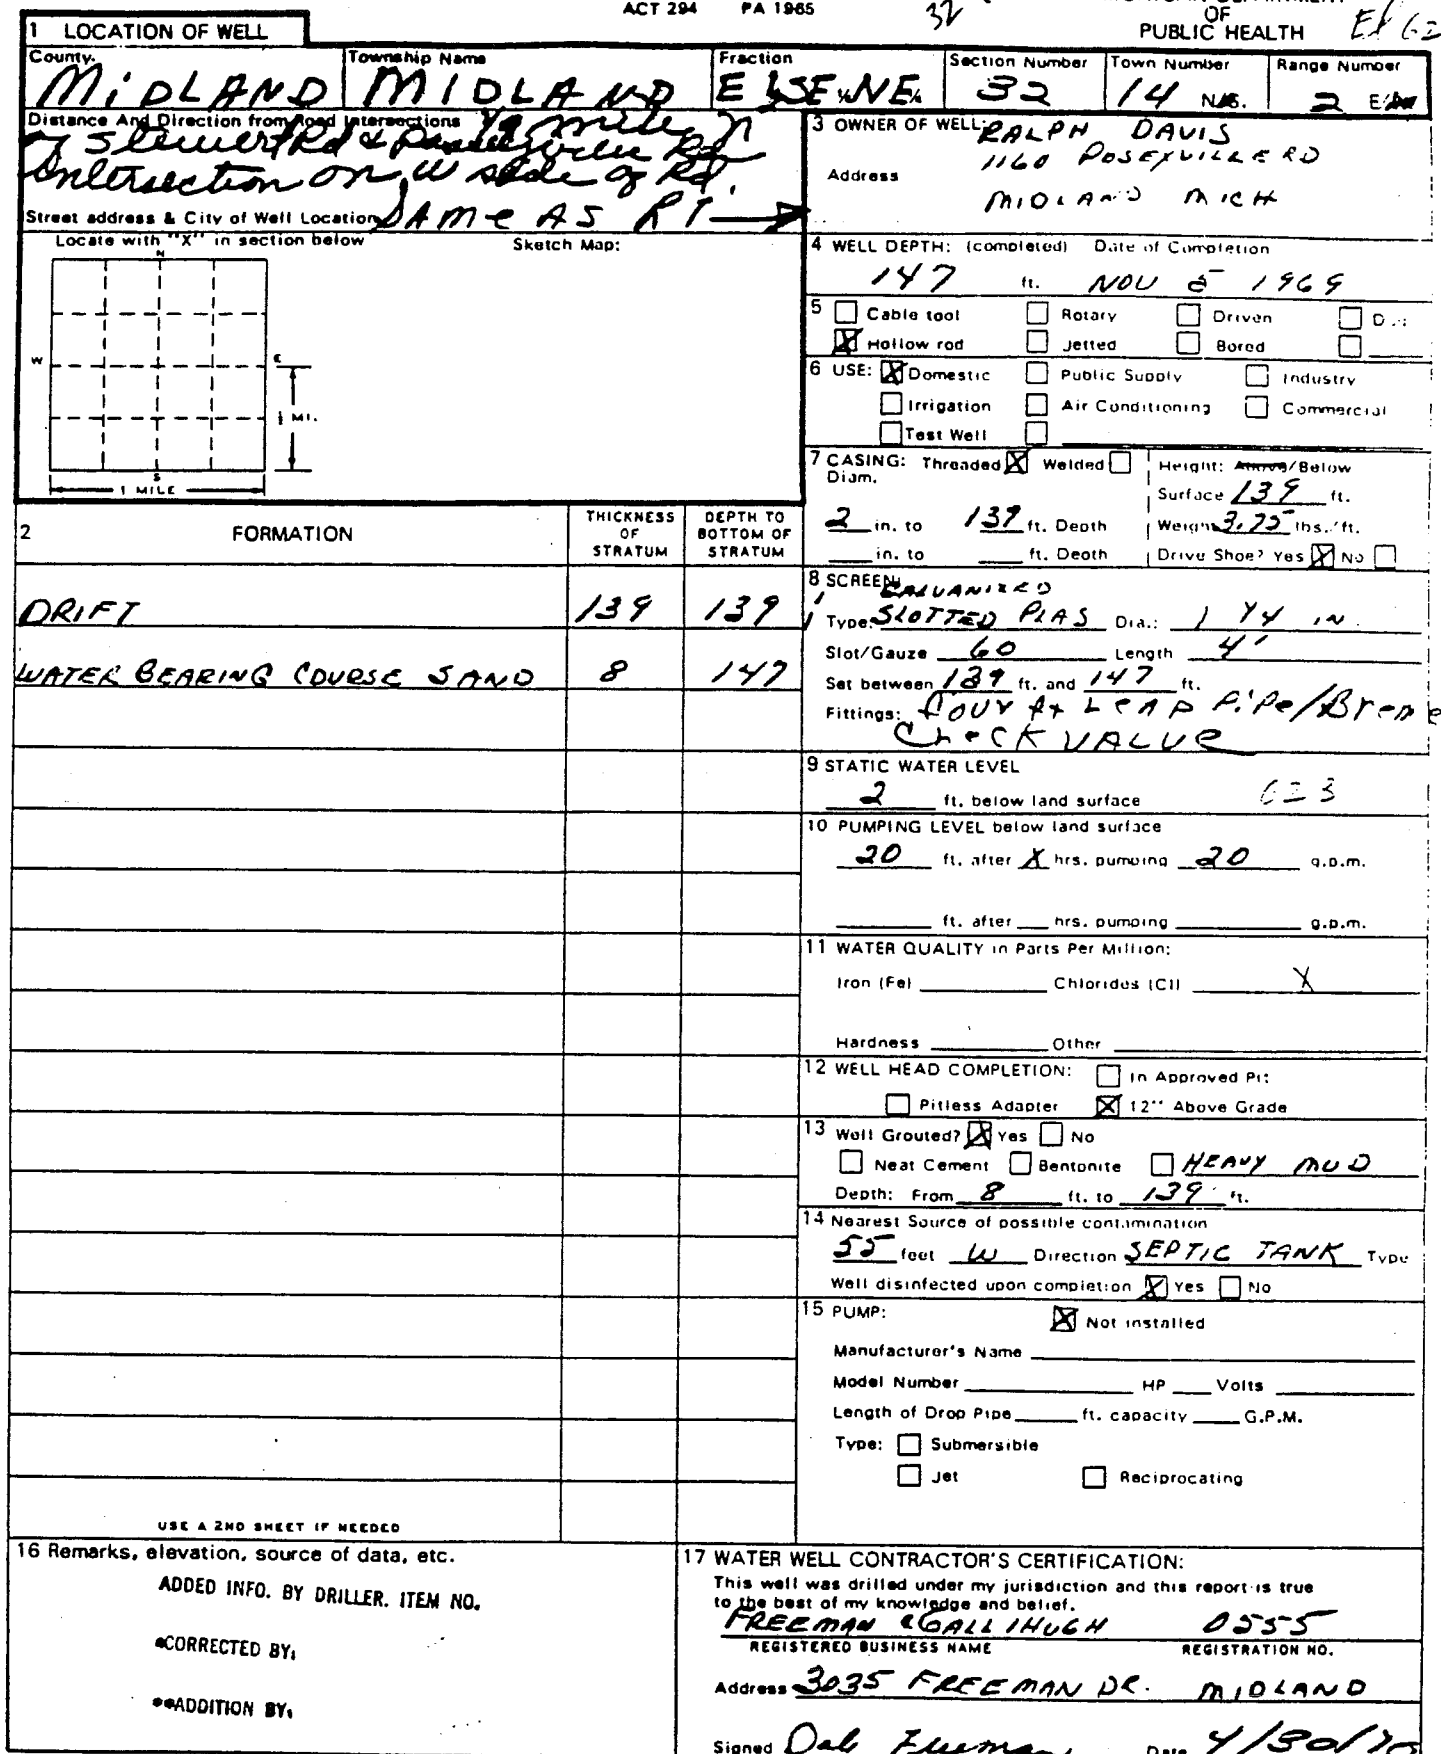 ACT 294 PA 1965
32
OF
PUBLIC HEALTH
1 LOCATION OF WELL
County Township Name Fraction Section Number Town Number Range Number
MiDLAND MIDLAND E ½SE¼NE¼ 32 14 N/S. 2 E/W
Distance And Direction from Road Intersections ½ mile N
of Stewert Rd & Poseyville Rd
Intersection on W side of Rd.
Street address & City of Well Location SAMe AS RT →
3 OWNER OF WELL: RALPH DAVIS
1160 POSEYVILLE RD
Address
MIDLAND MICH
Locate with "X" in section below Sketch Map:
N
W
E
S
½ MI.
1 MILE
4 WELL DEPTH: (completed) Date of Completion
147 ft. NOV 5 1969
5 Cable tool Rotary Driven
X Hollow rod Jetted Bored
6 USE: X Domestic Public Supply Industry
Irrigation Air Conditioning Commercial
Test Well
7 CASING: Threaded X Welded Height: Above/Below
Diam.
Surface 139 ft.
2 in. to 139 ft. Depth Weight 3.75 lbs./ft.
in. to ft. Depth Drive Shoe? Yes X No
8 SCREEN:
GALVANIZED
Type: SLOTTED PLAS Dia.: 1 1/4 IN
Slot/Gauze 60 Length 4'
Set between 139 ft. and 147 ft.
Fittings: four ft LEAD PiPe/Breme
CHeCK VALUe
9 STATIC WATER LEVEL
2 ft. below land surface 623
10 PUMPING LEVEL below land surface
20 ft. after X hrs. pumping 20 g.p.m.
ft. after hrs. pumping g.p.m.
11 WATER QUALITY in Parts Per Million:
Iron (Fe) Chlorides (Cl) X
Hardness Other
12 WELL HEAD COMPLETION: In Approved Pit
Pitless Adapter X 12" Above Grade
13 Well Grouted? X Yes No
Neat Cement Bentonite HEAVY MUD
Depth: From 8 ft. to 139 ft.
14 Nearest Source of possible contamination
55 feet W Direction SEPTIC TANK Type
Well disinfected upon completion X Yes No
15 PUMP: X Not installed
Manufacturer's Name
Model Number HP Volts
Length of Drop Pipe ft. capacity G.P.M.
Type: Submersible
Jet Reciprocating
2 FORMATION THICKNESS OF STRATUM DEPTH TO BOTTOM OF STRATUM
DRIFT 139 139
WATER BEARING COURSE SAND 8 147
USE A 2ND SHEET IF NEEDED
16 Remarks, elevation, source of data, etc.
ADDED INFO. BY DRILLER. ITEM NO.
*CORRECTED BY:
**ADDITION BY:
17 WATER WELL CONTRACTOR'S CERTIFICATION:
This well was drilled under my jurisdiction and this report is true
to the best of my knowledge and belief.
FREEMAN & GALLIHUGH 0555
REGISTERED BUSINESS NAME REGISTRATION NO.
Address 3035 FREEMAN DR. MIDLAND
Signed Dale Freeman Date 4/30/70